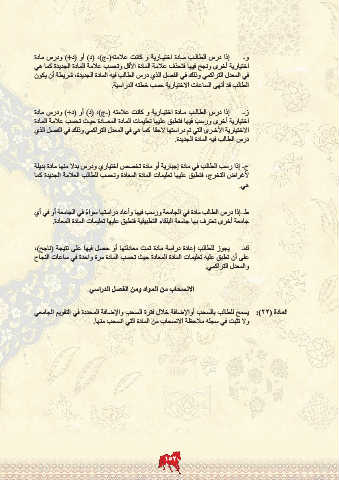 و. إذا درس الطالب مادة اختيارية و كانت علامته (-ج)، (د) أو (+د) ودرس مادة
اختيارية أخرى ونجح فيها فتحذف علامة المادة الأقل وتحسب علامة المادة الجديدة كما هي
في المعدل التراكمي وذلك في الفصل الذي درس الطالب فيه المادة الجديدة، شريطة أن يكون
الطالب قد أنهى الساعات الاختيارية حسب خطته الدراسية.
ز. إذا درس الطالب مادة اختيارية و كانت علامته (-ج)، (د) أو (+د) ودرس مادة
اختيارية أخرى ورسب فيها فتطبق عليها تعليمات المادة المعادة حيث تحسب علامة المادة
الاختيارية الأخرى التي تم دراستها لاحقا كما هي في المعدل التراكمي وذلك في الفصل الذي
درس الطالب فيه المادة الجديدة.
ح. إذا رسب الطالب في مادة إجبارية أو مادة تخصص اختياري ودرس بدلاً منها مادة بديلة
لأغراض التخرج، فتطبق عليها تعليمات المادة المعادة وتحسب للطالب العلامة الجديدة كما
هي.
ط. إذا درس الطالب مادة في الجامعة ورسب فيها وأعاد دراستها سواءً في الجامعة أو في أي
جامعة أخرى تعترف بها جامعة البلقاء التطبيقية فتطبق عليها تعليمات المادة المعادة.
ك. يجوز للطالب إعادة دراسة مادة تمت معادلتها أو حصل فيها على نتيجة (ناجح)،
على أن تطبق عليه تعليمات المادة المعادة حيث تحسب المادة مرة واحدة في ساعات النجاح
والمعدل التراكمي.
الانسحاب من المواد ومن الفصل الدراسي
المادة (٢٢): يسمح للطالب بالسحب أو الإضافة خلال فترة السحب والإضافة المحددة في التقويم الجامعي
ولا تثبت في سجله ملاحظة الانسحاب من المادة التي انسحب منها.
١٥٢